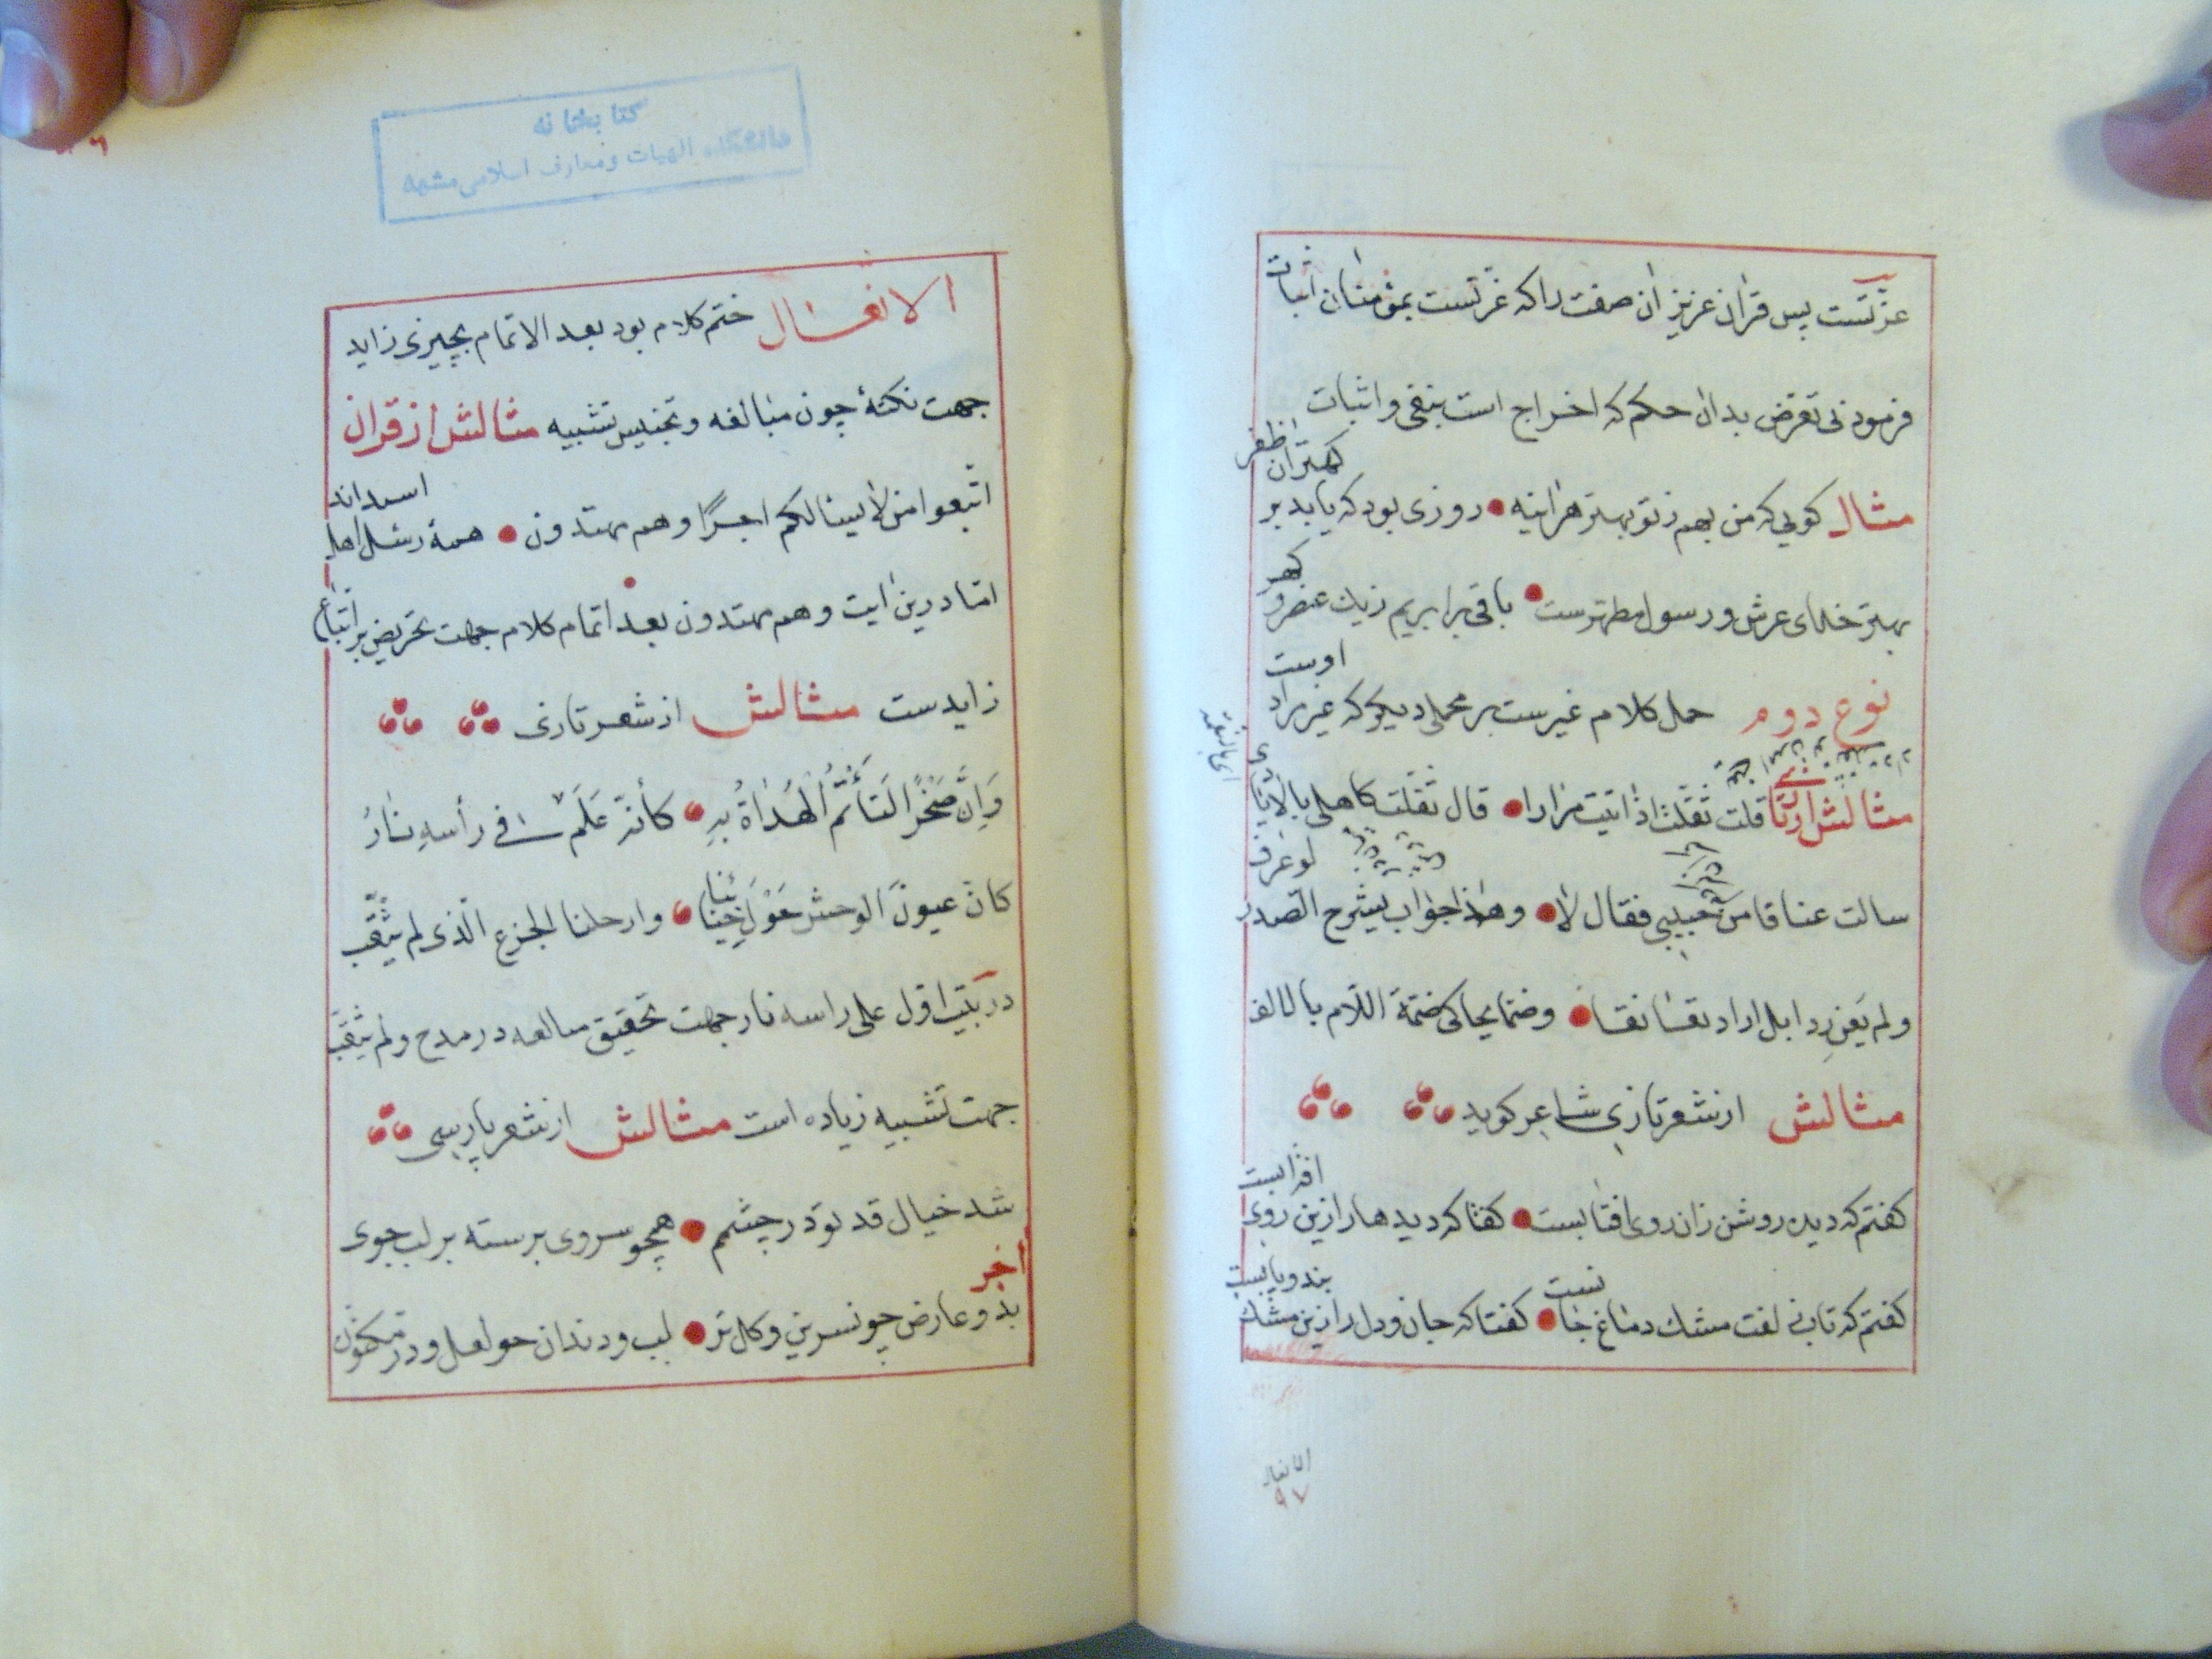 عزتست پس قران عزیز ان صفت را که عزتست بمؤمنان اثبات
فرمود نی تعرض بدان حکم که اخراج است بنفی و اثبات
مثال کویی که من بهم ز تو بهتر هراینه روزی بود که یابد بر
کهتران ظفر
بهتر خدای عرش و رسول مطهرست باقی برابریم زیک عنصر و
کهر
نوع دوم حمل کلام غیرست بر محملی دیکر که غیر مراد
اوست
قلت ثقلت اذ اتیت مرارا قال ثقلت کاهلی بالایادی
سالت عناقا من حبیبی فقال لا وهذا جواب لیشرح الصدر
لو عرف
ولم یعن ردا بل اراد تعانقا وضما یحاکی ضمة اللام بالالف
مثالش از شعر تازی شاعر کوید
کفتم که دیده روشن زان روی افتابست کفتا که دیدها را زین روی
افتابست
کفتم که تاب زلفت مشک دماغ جانست کفتا که جان و دل را زین مشک
بند و یابست
الانفال
۹۷
کتابخانه
دانشکده الهیات و معارف اسلامی مشهد
الانفال ختم کلام بود بعد الاتمام بچیزی زاید
جهت نکتهٔ چون مبالغه و تجنیس تشبیه مثالش از قران
اتبعوا من لا یسالکم اجرا وهم مهتدون همهٔ رسل اهل
اما درین ایت وهم مهتدون بعد اتمام کلام جهت تحریض بر اتباع
زایدست مثالش از شعر تازی
وَاِنَّ صَخْرًا لَتَأْتَمُّ الْهُدَاةُ بِهِ کأنه عَلَم فی رأسهِ نارُ
کان عیونَ الوحش حَوْلَ خِبائنا وارحلنا الجزع الّذی لم یثقّب
در بیت اول علی راسه نار جهت تحقیق مبالغه در مدح و لم یثقب
جهت تشبیه زیاده است مثالش از شعر پارسی
شد خیال قد تو در چشمم همچو سروی برسته بر لب جوی
اخر
بد و عارض چو نسرین و کل تر لب و دندان چو لعل و در مکنون